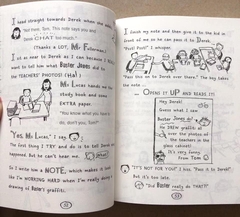 I head straight towards Derek when she asks
(Thanks a LOT, Mr Fullerman.)
I sit as near to Derek as I can because I REALLY
want to tell him what Buster Jones did to
the TEACHERS' PHOTOS! (Ha!)
Mr Lucas hands me the
study book and some
EXTRA paper.
"You know what you have to
do, don't you, Tom?"
"Yes, Mr Lucas," I say.
The first thing I TRY and do is to tell Derek what
happened. But he can't hear me.
So I write him a NOTE, which makes it look
like I'm WORKING hard when I'm really doing a
drawing of Buster's graffiti.
32
I finish my note and then give it to the kid in
front of me so he can pass it to Derek.
"Psst! Psst!" I whisper.
"Pass this on to Derek over there." The boy takes
the note ...
... OPENS IT UP AND READS IT!
Hey Derek!
Guess what I
saw?
Buster Jones did!
He DREW graffiti all
over the photos of
the teachers in the
glass cabinet!
It's very funny.
From Tom
"IT'S NOT FOR YOU!" I hiss. "Pass it to Derek!"
But it's too late.
"Did Buster really do THAT?"
33